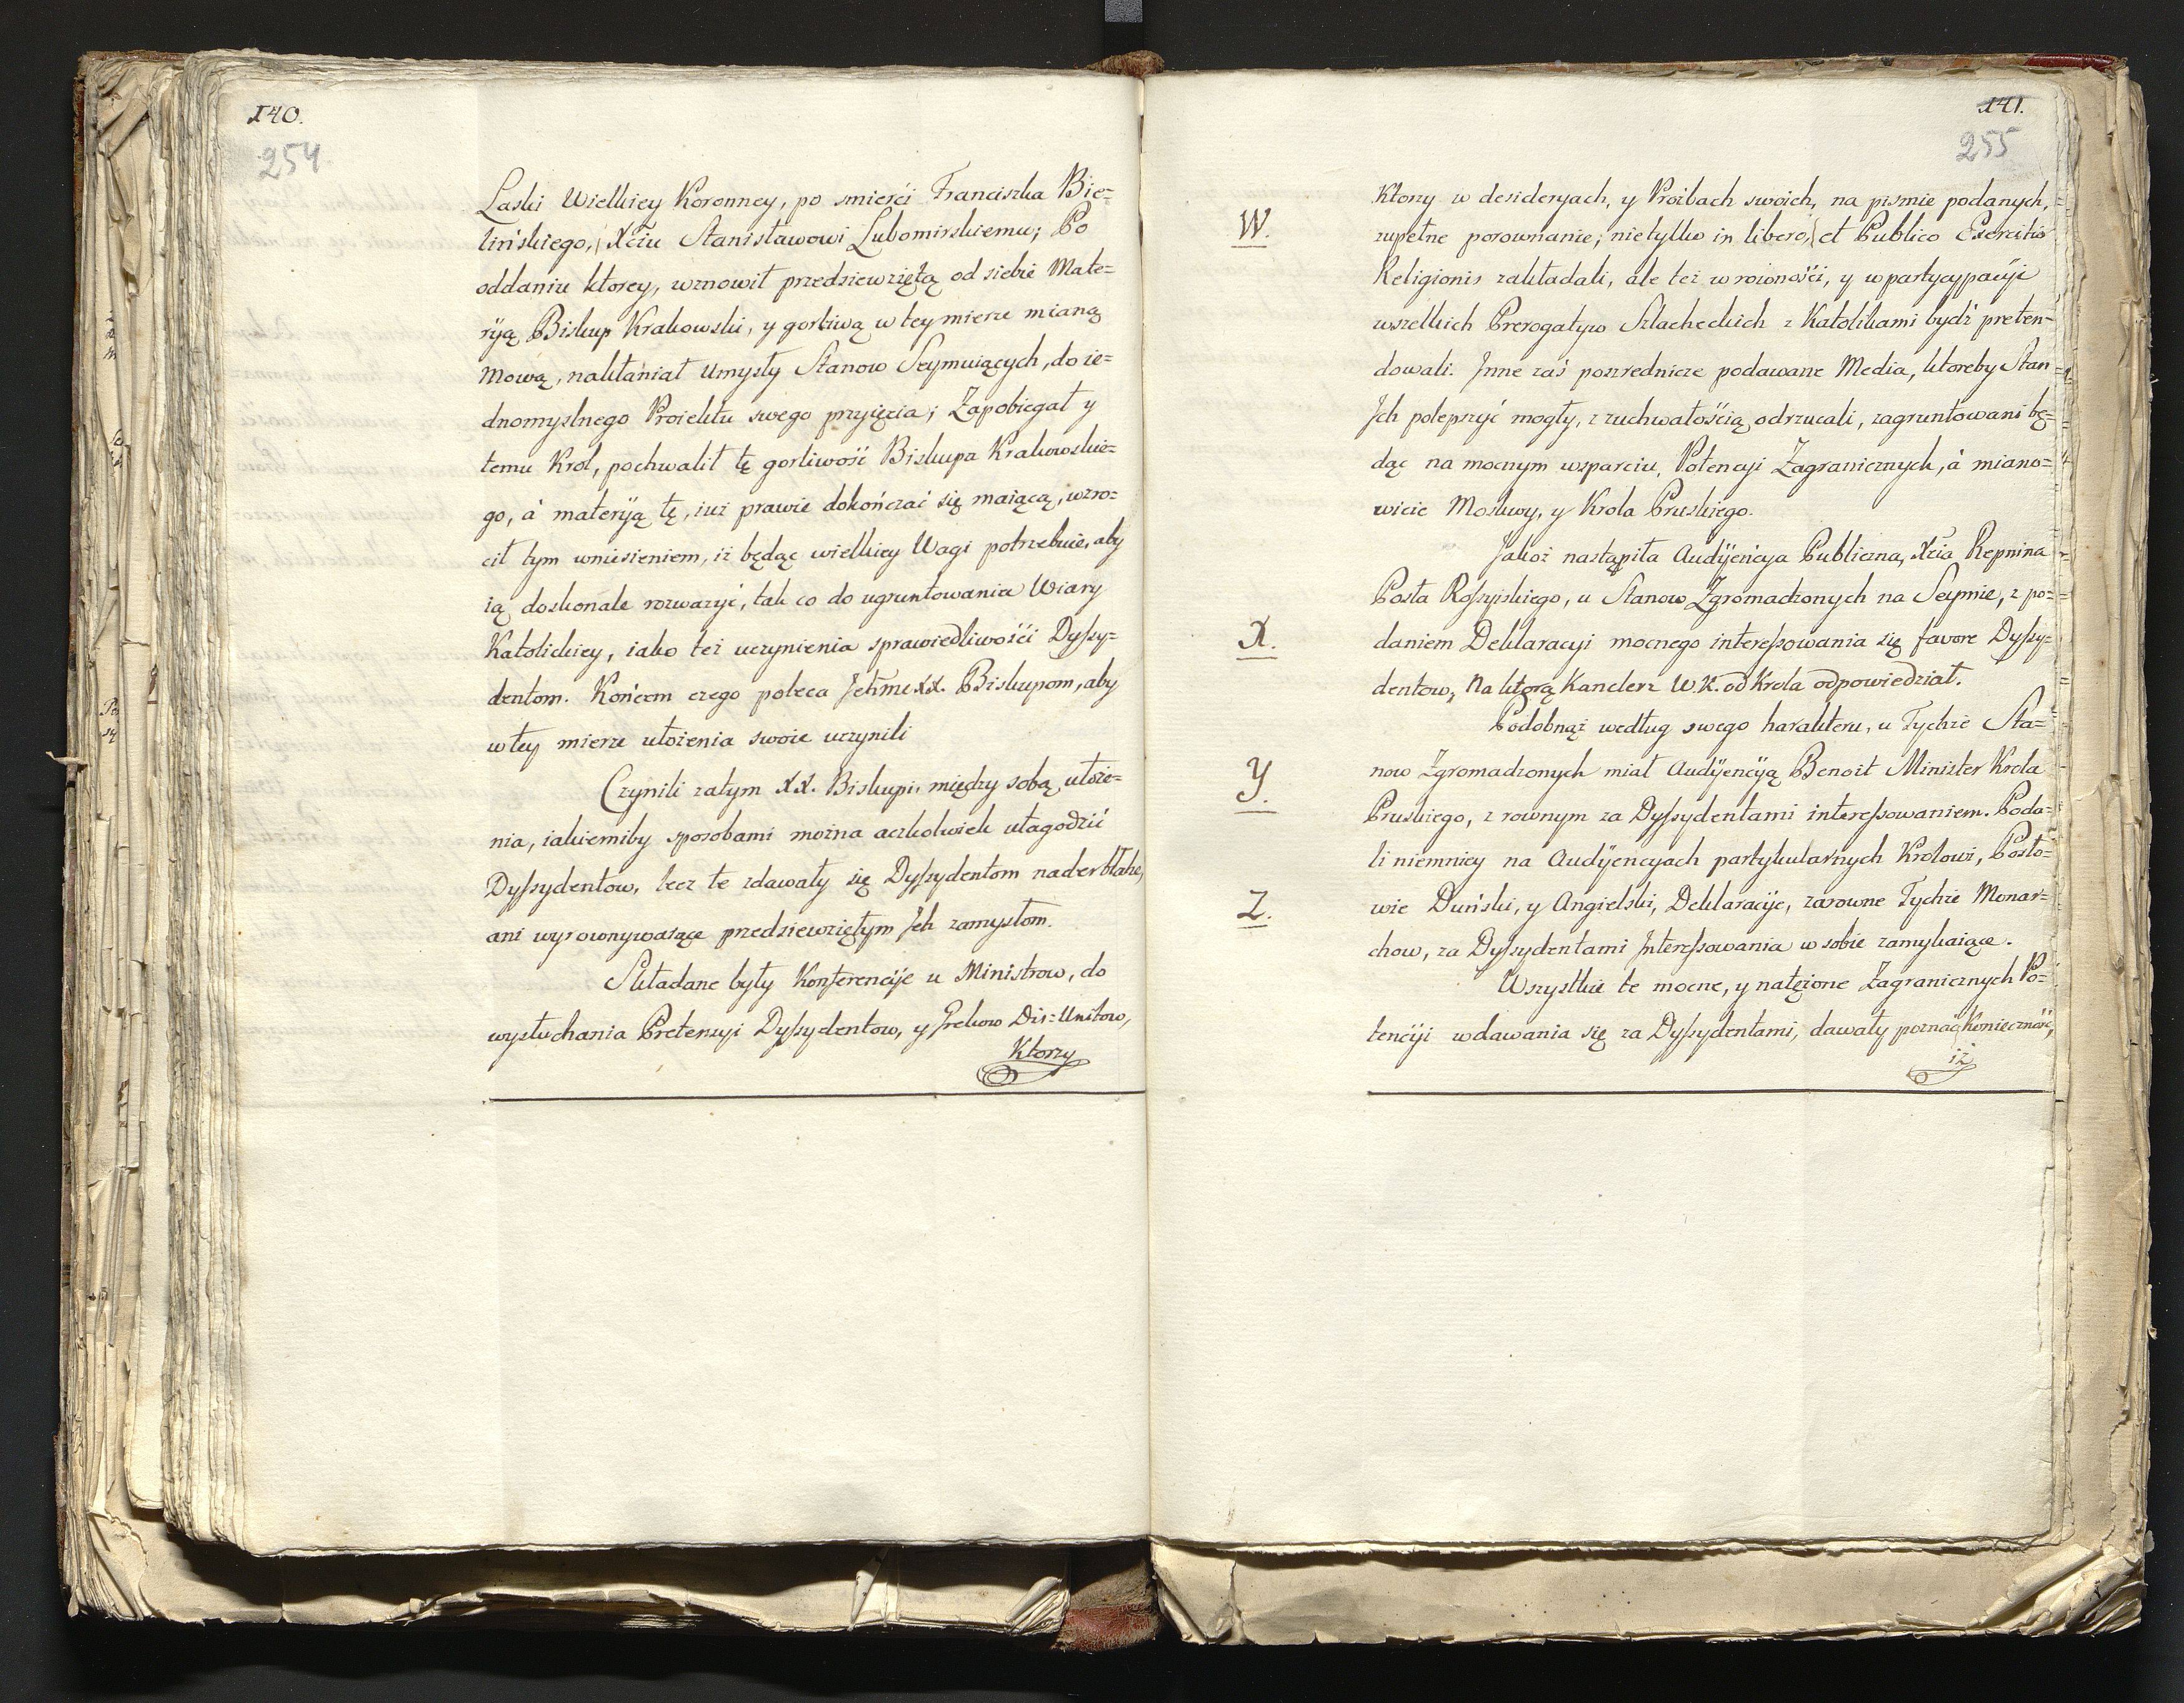 140.
254
Laski Wielkiey Koronney, po smierći Franciszka Bie=
lińskiego, Xćiu Stanisławowi Lubomirskiemu; Po
oddaniu ktorey, wznowił przedsiewziętą od siebie Mate=
ryą Biskup Krakowski, y gorliwą w tey mierze mianą
Mową, nakłaniał Umysły Stanow Seymuiących, do ie=
dnomyslnego Proiektu swego przyięcia; Zapobiegał y
temu Krol, pochwalił tę gorliwość Biskupa Krakowskie=
go, á materyią tę, iuż prawie dokończać się maiącą, wzro=
cił tym wniesieniem, iż będąc wielkiey Wagi potrzebuie, aby
ią doskonale rozważyć, tak co do ugruntowania Wiary
Katolickiey, iako też uczynienia sprawiedliwośći Dyssy=
dentom. Końcem czego poleca Jchmć XX. Biskupom, aby
w tey mierze ułożenia swoie uczynili
Czynili zatym XX. Biskupi, między sobą, ułoże=
nia, iakiemiby sposobami można aczkolwiek ułagodzić
Dyssydentow, lecz te zdawały się Dyssydentom nader błahe,
ani wyrownywaiące przedsiewziętym Jch zamysłom.
Składane były Konferencyie u Ministrow, do
wysłuchania Pretensyi Dyssydentow, y Grekow Dis=Unitow,
Ktorzy
141.
255
Ktorzy w desideryach, y Proźbach swoich, na pismie podanych,
W.
zupełne porownanie; nietylko in libero, et Publico Exercitio
Religionis zakładali, ale też w rowności, y w partycypacyi
wszelkich Prerogatyw Szlacheckich z Katolikami bydź preten=
dowali. Jnne zaś pośrzednicze podawane Media, ktoreby Stan
Jch polepszyć mogły, z zuchwałością odrzucali, zagruntowani bę=
dąc na mocnym wsparciu, Potencyi Zagranicznych, á miano=
wicie Moskwy, y Krola Pruskiego.
Jakoż nastąpiła Audyieńcya Publiczna, Xcia Repnina
Posła Rossyiskiego, u Stanow Zgromadzonych na Seymie, z po=
X.
daniem Deklaracyi mocnego interessowania się favore Dyssy=
dentow, Na ktorą Kanclerz W. K. od Krola odpowiedział.
Podobnąż według swego harakteru, u Tychże Sta=
Y.
now Zgromadzonych miał Audyiencyią Benoit Minister Krola
Pruskiego, z rownym za Dyssydentami interessowaniem. Poda=
li niemniey na Audyiencyach partykularnych Krolowi, Posło=
Z.
wie Duński, y Angielski, Deklaracyie, zarowne Tychże Monar=
chow, za Dyssydentami Jnteressowania w sobie zamykaiące.
Wszystkie te mocne, y natężone Zagranicznych Po=
tencyi wdawania się za Dyssydentami, dawały poznać Konieczność,
iż